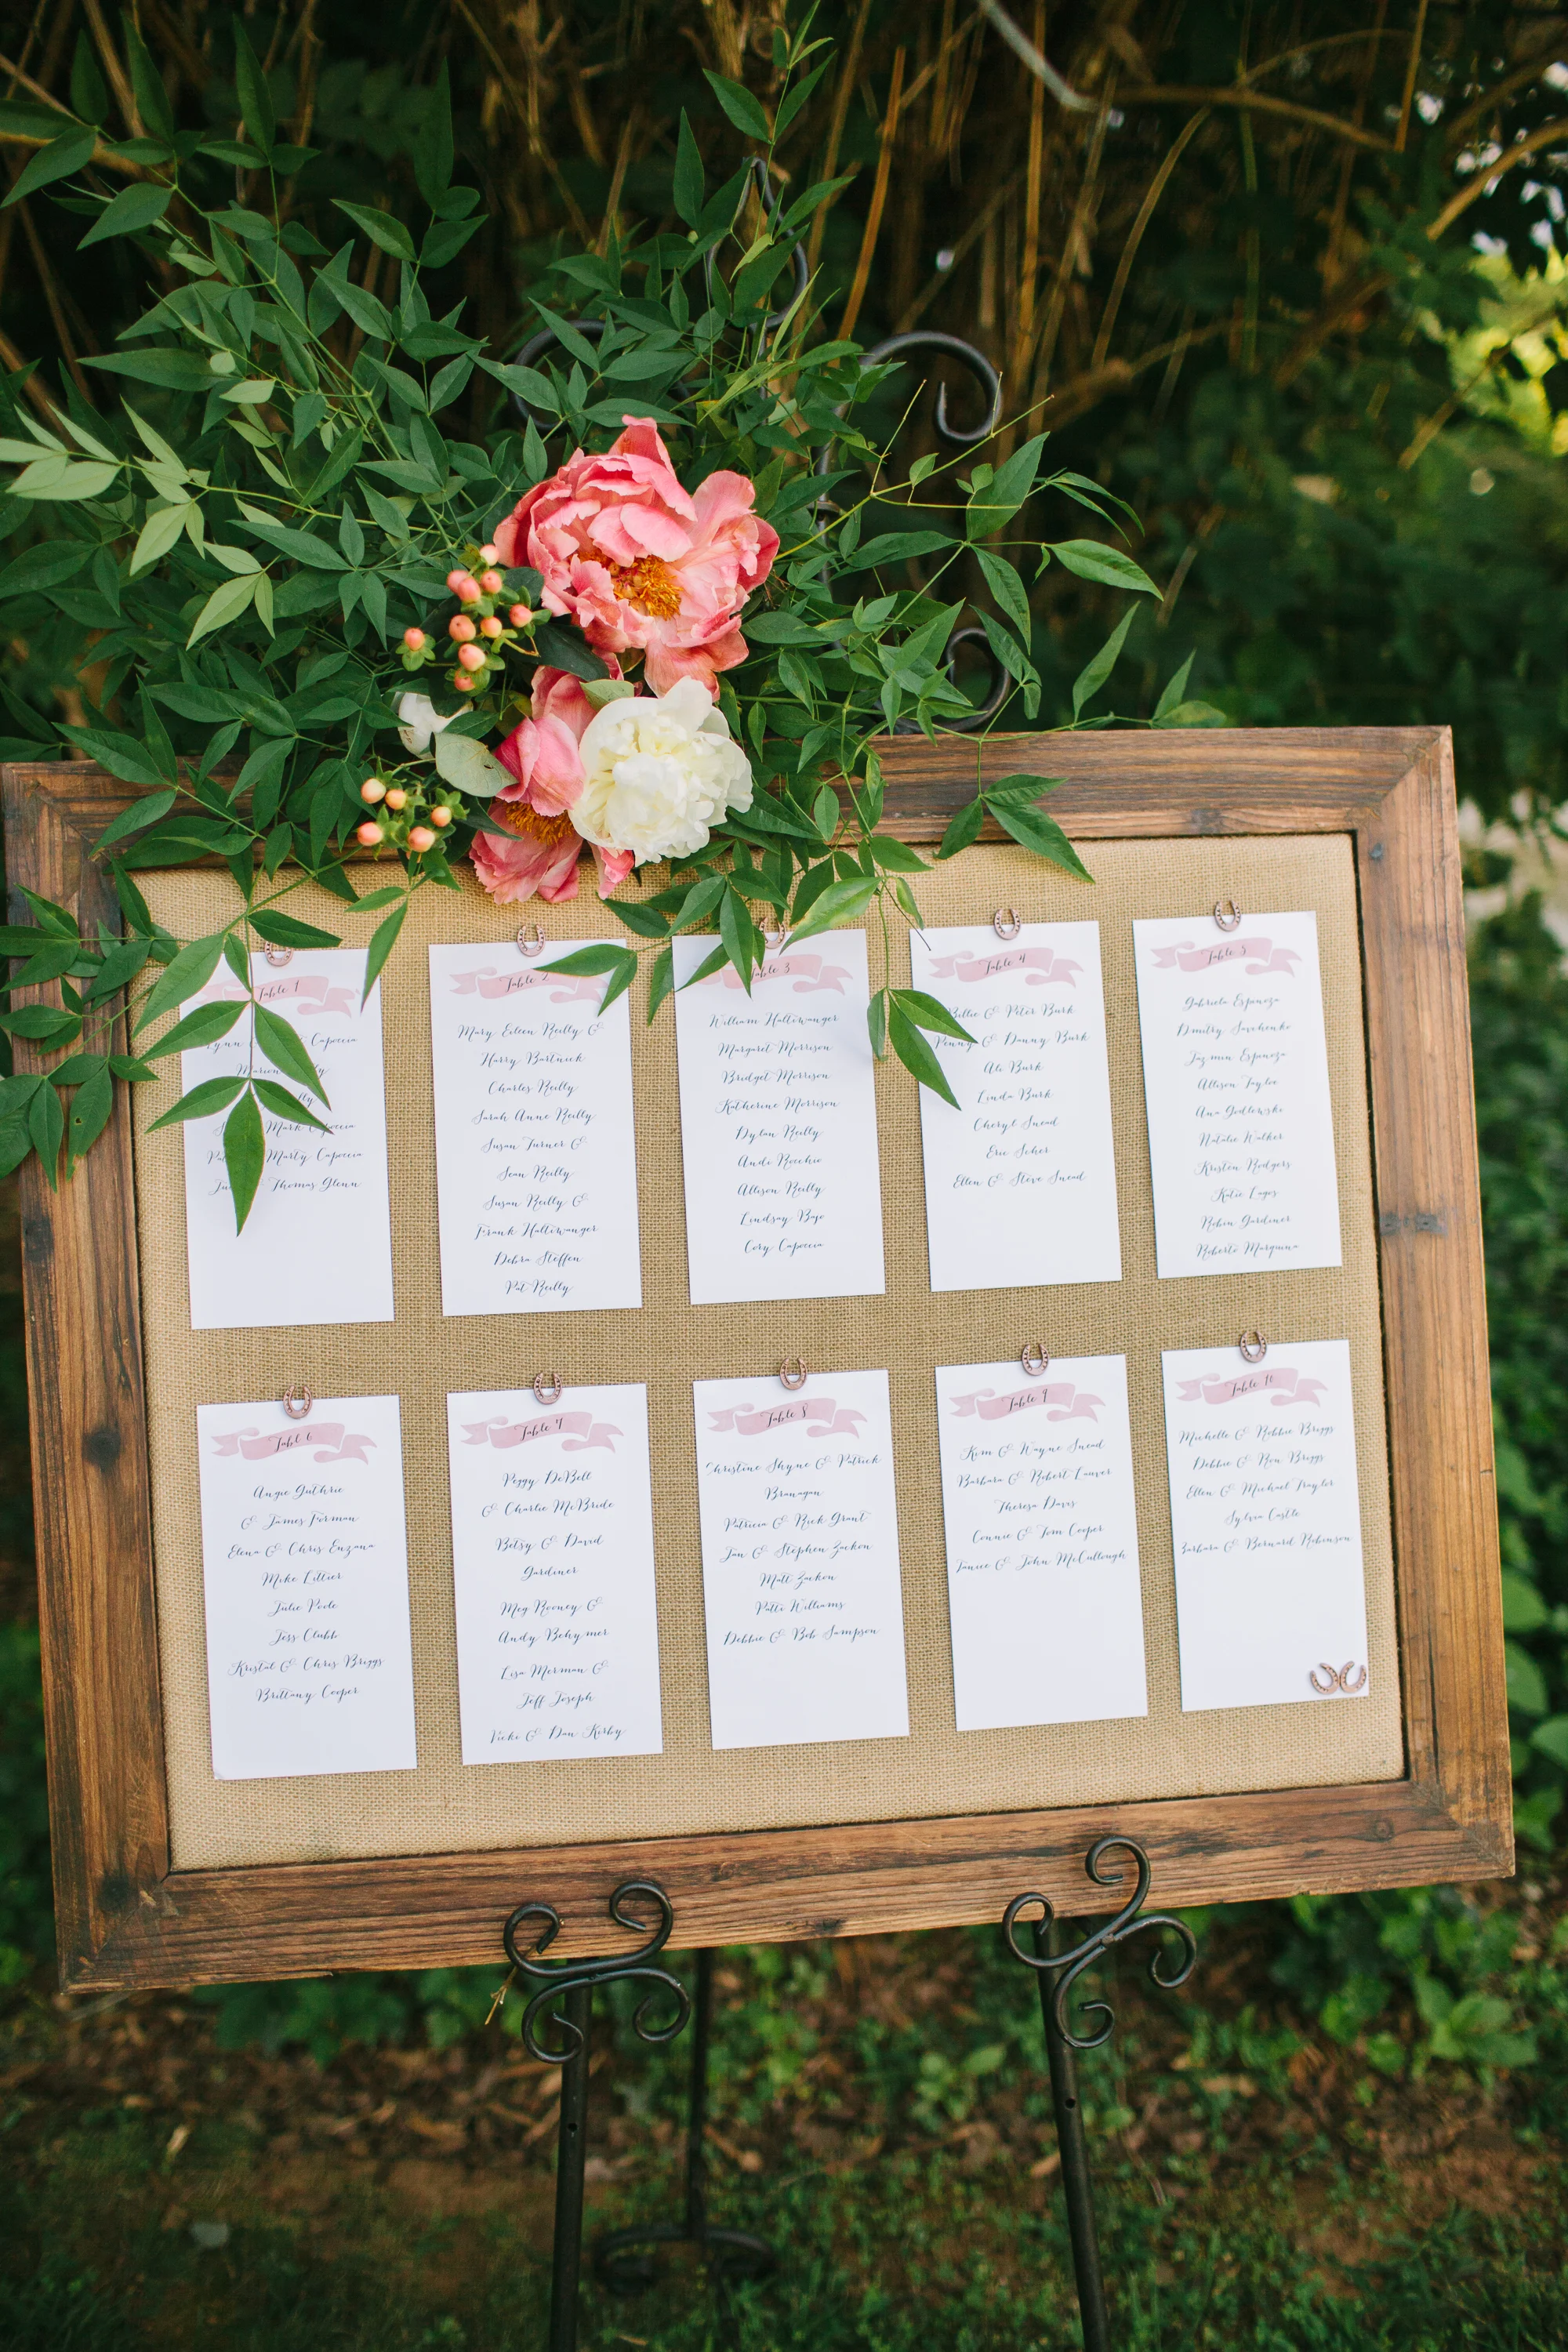 Table 1
Lynn Capoccia
Marion
Mark Capoccia
Marty Capoccia
Thomas Glenn
Table 2
Mary Eileen Reilly &
Harry Bartnick
Charles Reilly
Sarah Anne Reilly
Susan Turner &
Sean Reilly
Susan Reilly &
Frank Haltiwanger
Debra Steffen
Pat Reilly
Table 3
William Haltiwanger
Margaret Morrison
Bridget Morrison
Katherine Morrison
Dylan Reilly
Andi Rocchio
Allison Reilly
Lindsay Bajo
Cory Capoccia
Table 4
Billie & Peter Burk
Penny & Danny Burk
Ali Burk
Linda Burk
Cheryl Snead
Eric Scher
Ellen & Steve Snead
Table 5
Gabriela Espinoza
Dmitry Savchenko
Jazmin Espinoza
Allison Tayloe
Ana Godlewski
Natalie Walker
Kristen Rodgers
Katie Lagos
Robin Gardiner
Roberto Marquina
Table 6
Angie Guthrie
& James Forman
Elena & Chris Enzana
Mike Littier
Julie Poole
Jess Clubb
Kristal & Chris Briggs
Brittany Cooper
Table 7
Peggy DeBell
& Charlie McBride
Betsy & David
Gardiner
Meg Rooney &
Andy Behymer
Lisa Merman &
Jeff Joseph
Vicki & Dan Kirby
Table 8
Christine Shyne & Patrick
Branagan
Patricia & Rick Grant
Jan & Stephen Zacken
Matt Zacken
Patti Williams
Debbie & Bob Sampson
Table 9
Kim & Wayne Snead
Barbara & Robert Lauver
Theresa Davis
Connie & Tom Cooper
Janice & John McCullough
Table 10
Michelle & Robbie Briggs
Debbie & Ron Briggs
Ellen & Michael Traylor
Sylvia Castle
Barbara & Bernard Robinson